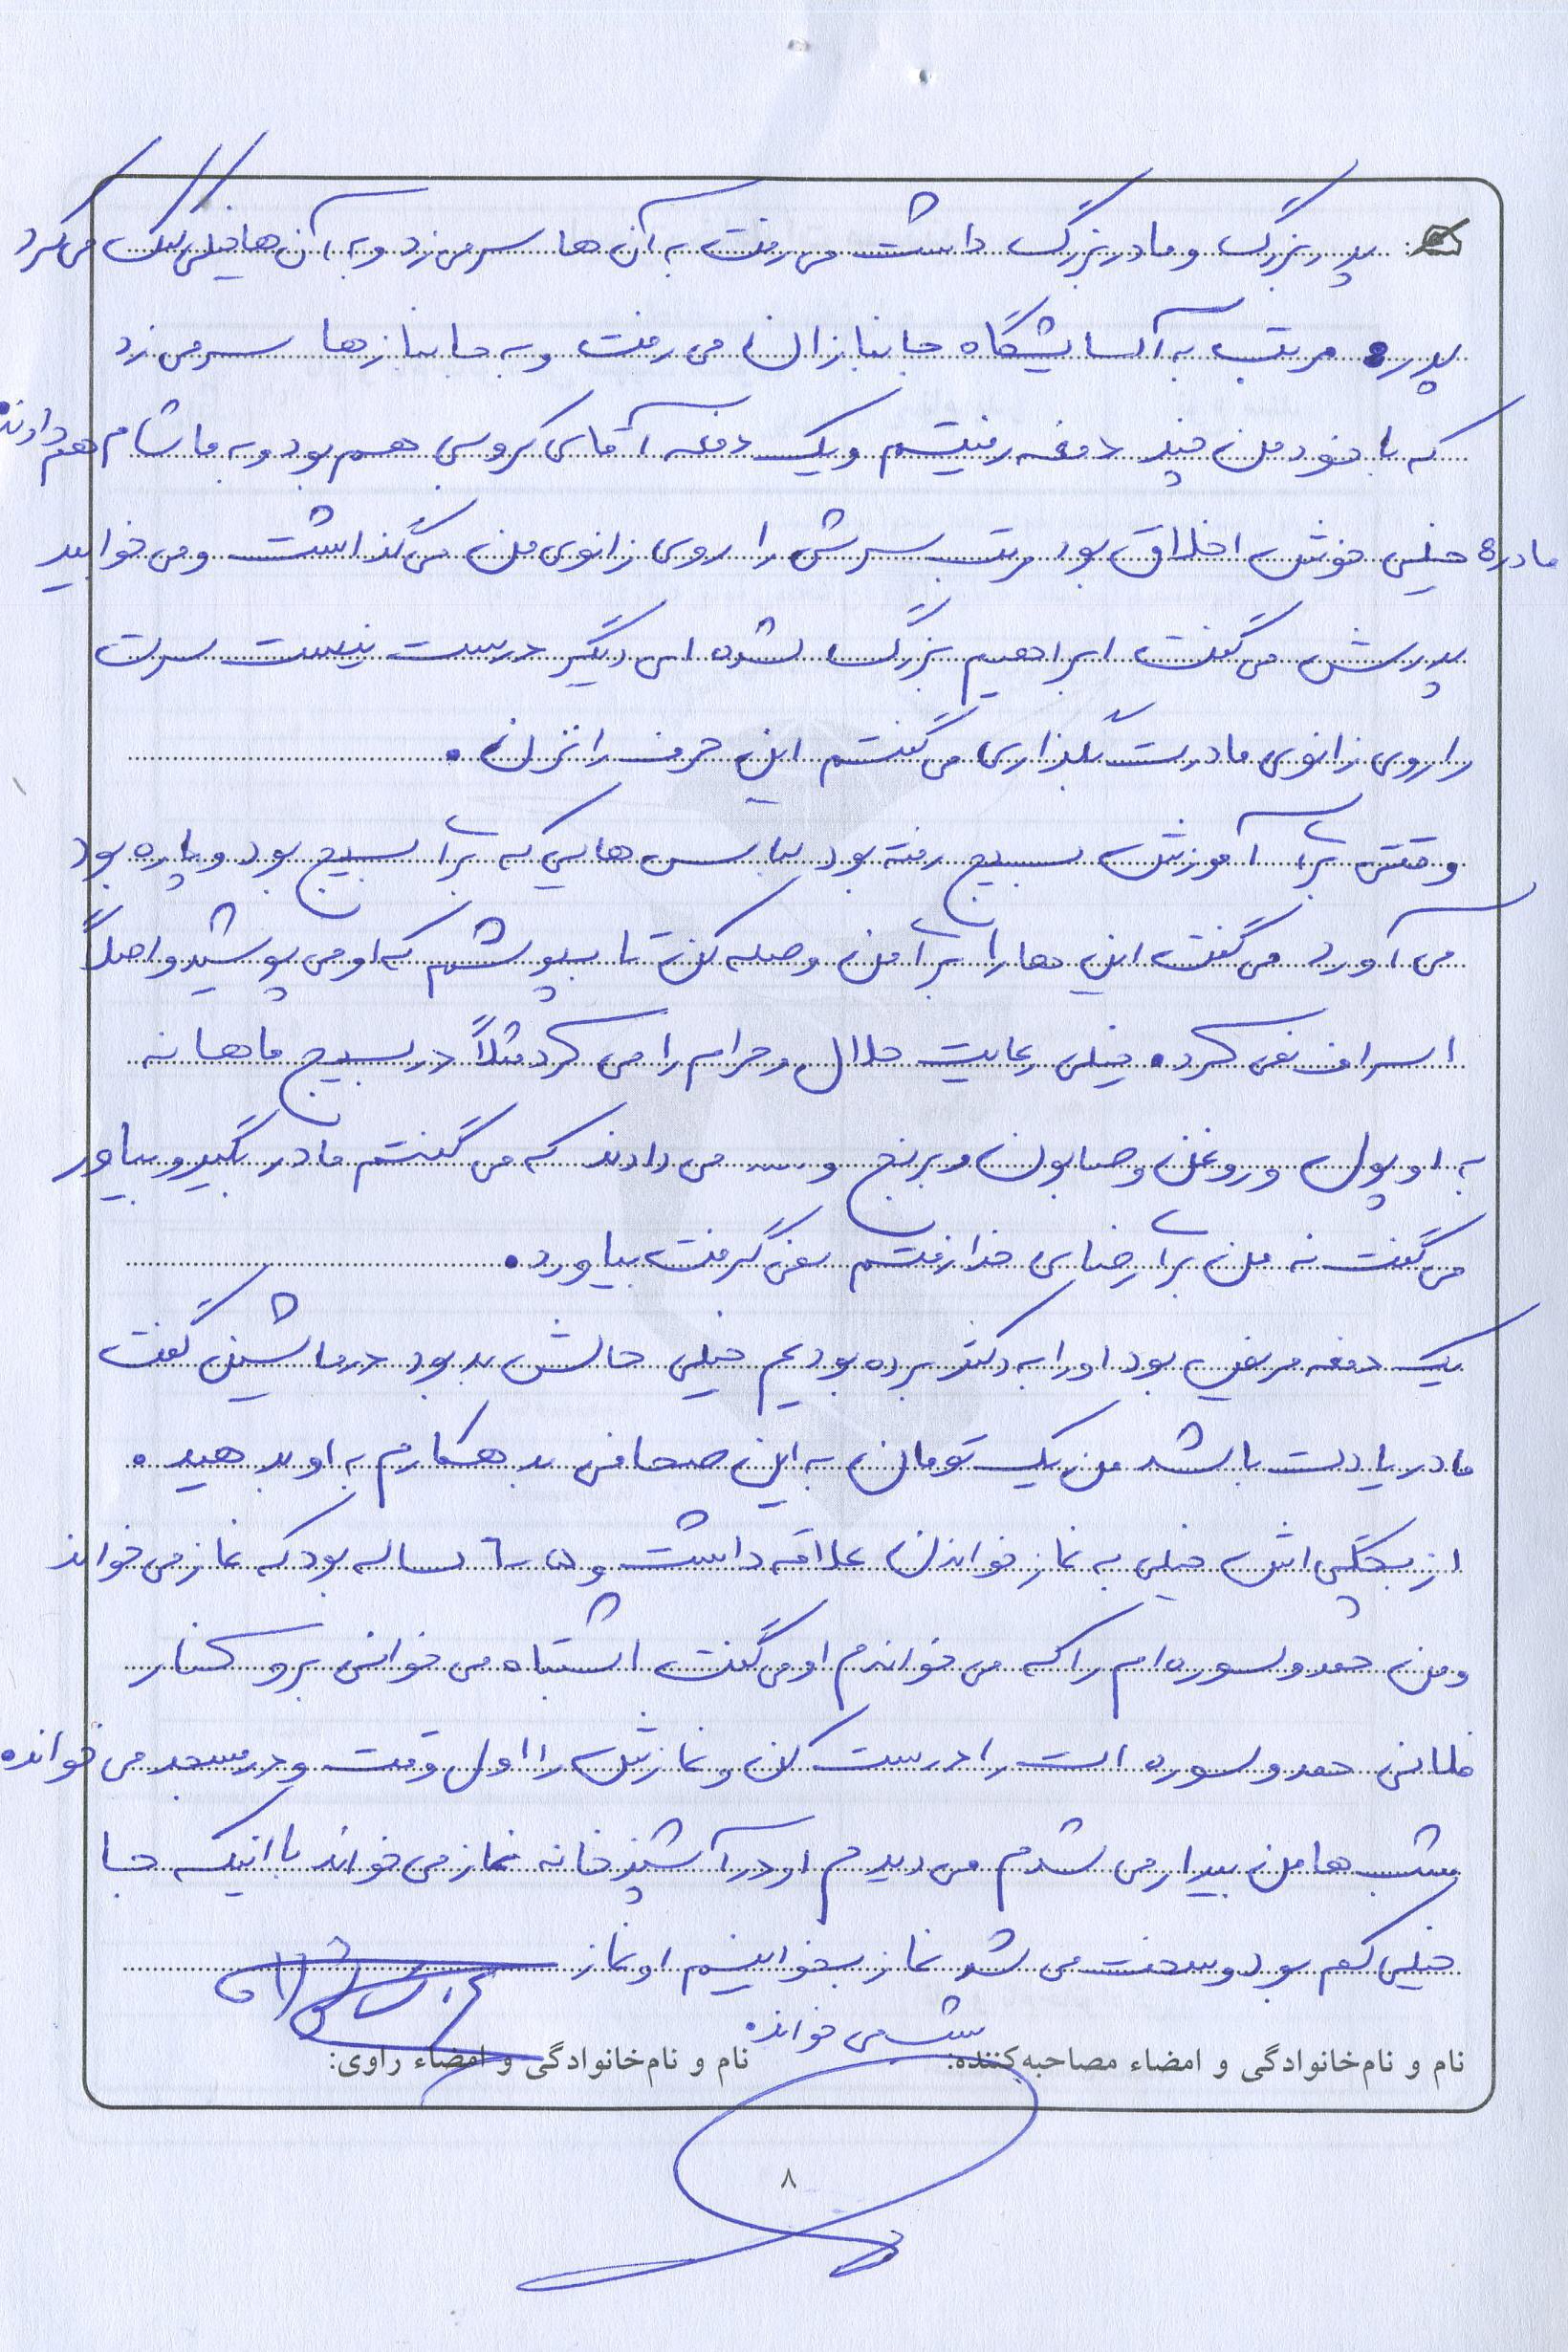 پدربزرگ و مادربزرگ داشت می رفت به آن ها سر می زد و به آن ها خیلی کمک می کرد
پدر: مرتب به آسایشگاه جانبازان می رفت و به جانبازها سر می زد
که با خود من چند دفعه رفتیم و یک دفعه آقای کروبی هم بود و به ما شام هم دادند.
مادر: خیلی خوش اخلاق بود مرتب سرش را روی زانوی من می گذاشت و می خوابید
پدرش می گفت ابراهیم بزرگ شده ای دیگر درست نیست سرت
را روی زانوی مادرت بگذاری می گفتم این حرف را نزن.
وقتی برای آموزش بسیج رفته بود لباس هایی که برای بسیج بود و پاره بود
می آورد می گفت این ها را برای من وصله کن تا بپوشم که او می پوشید و اصلاً
اسراف نمی کرد. خیلی رعایت حلال و حرام را می کرد مثلاً در بسیج ماهانه
به او پول و روغن و صابون و برنج و ... می دادند که می گفتم مادر بگیر و بیاور
می گفت نه من برای رضای خدا رفتم نمی گرفت بیاورد.
یک دفعه مریض بود او را به دکتر برده بودیم خیلی حالش بد بود در ماشین گفت
مادر یادت باشد من یک تومان به این صحافی بدهکارم به او بدهید.
از بچگی اش خیلی به نماز خواندن علاقه داشت و ۵-۶ ساله بود که نماز می خواند
و من حمد و سوره ام را که می خواندم او می گفت اشتباه می خوانی برو کنار
فلانی حمد و سوره ات را درست کن و نمازش را اول وقت و در مسجد می خواند.
شب ها من بیدار می شدم می دیدم او در آشپزخانه نماز می خواند با اینکه جا
خیلی کم بود و سخت می شد نماز بخوانیم او نماز
شب می خواند.
نام و نام‌خانوادگی و امضاء مصاحبه‌کننده: نام و نام‌خانوادگی و امضاء راوی:
۸